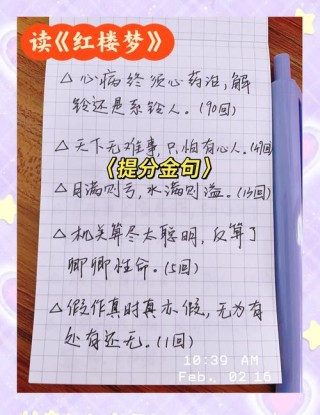 读《红楼梦》
△心病终须心药治,解
铃还是系铃人。(90回)
△天下无难事,只怕有心人。(49回)
《提分金句》
△月满则亏,水满则溢。(13回)
△机关算尽太聪明,反算了
卿卿性命。(5回)
△假作真时真亦假,无为有
处有还无。(1回)
10:39 AM
Feb. 02 16